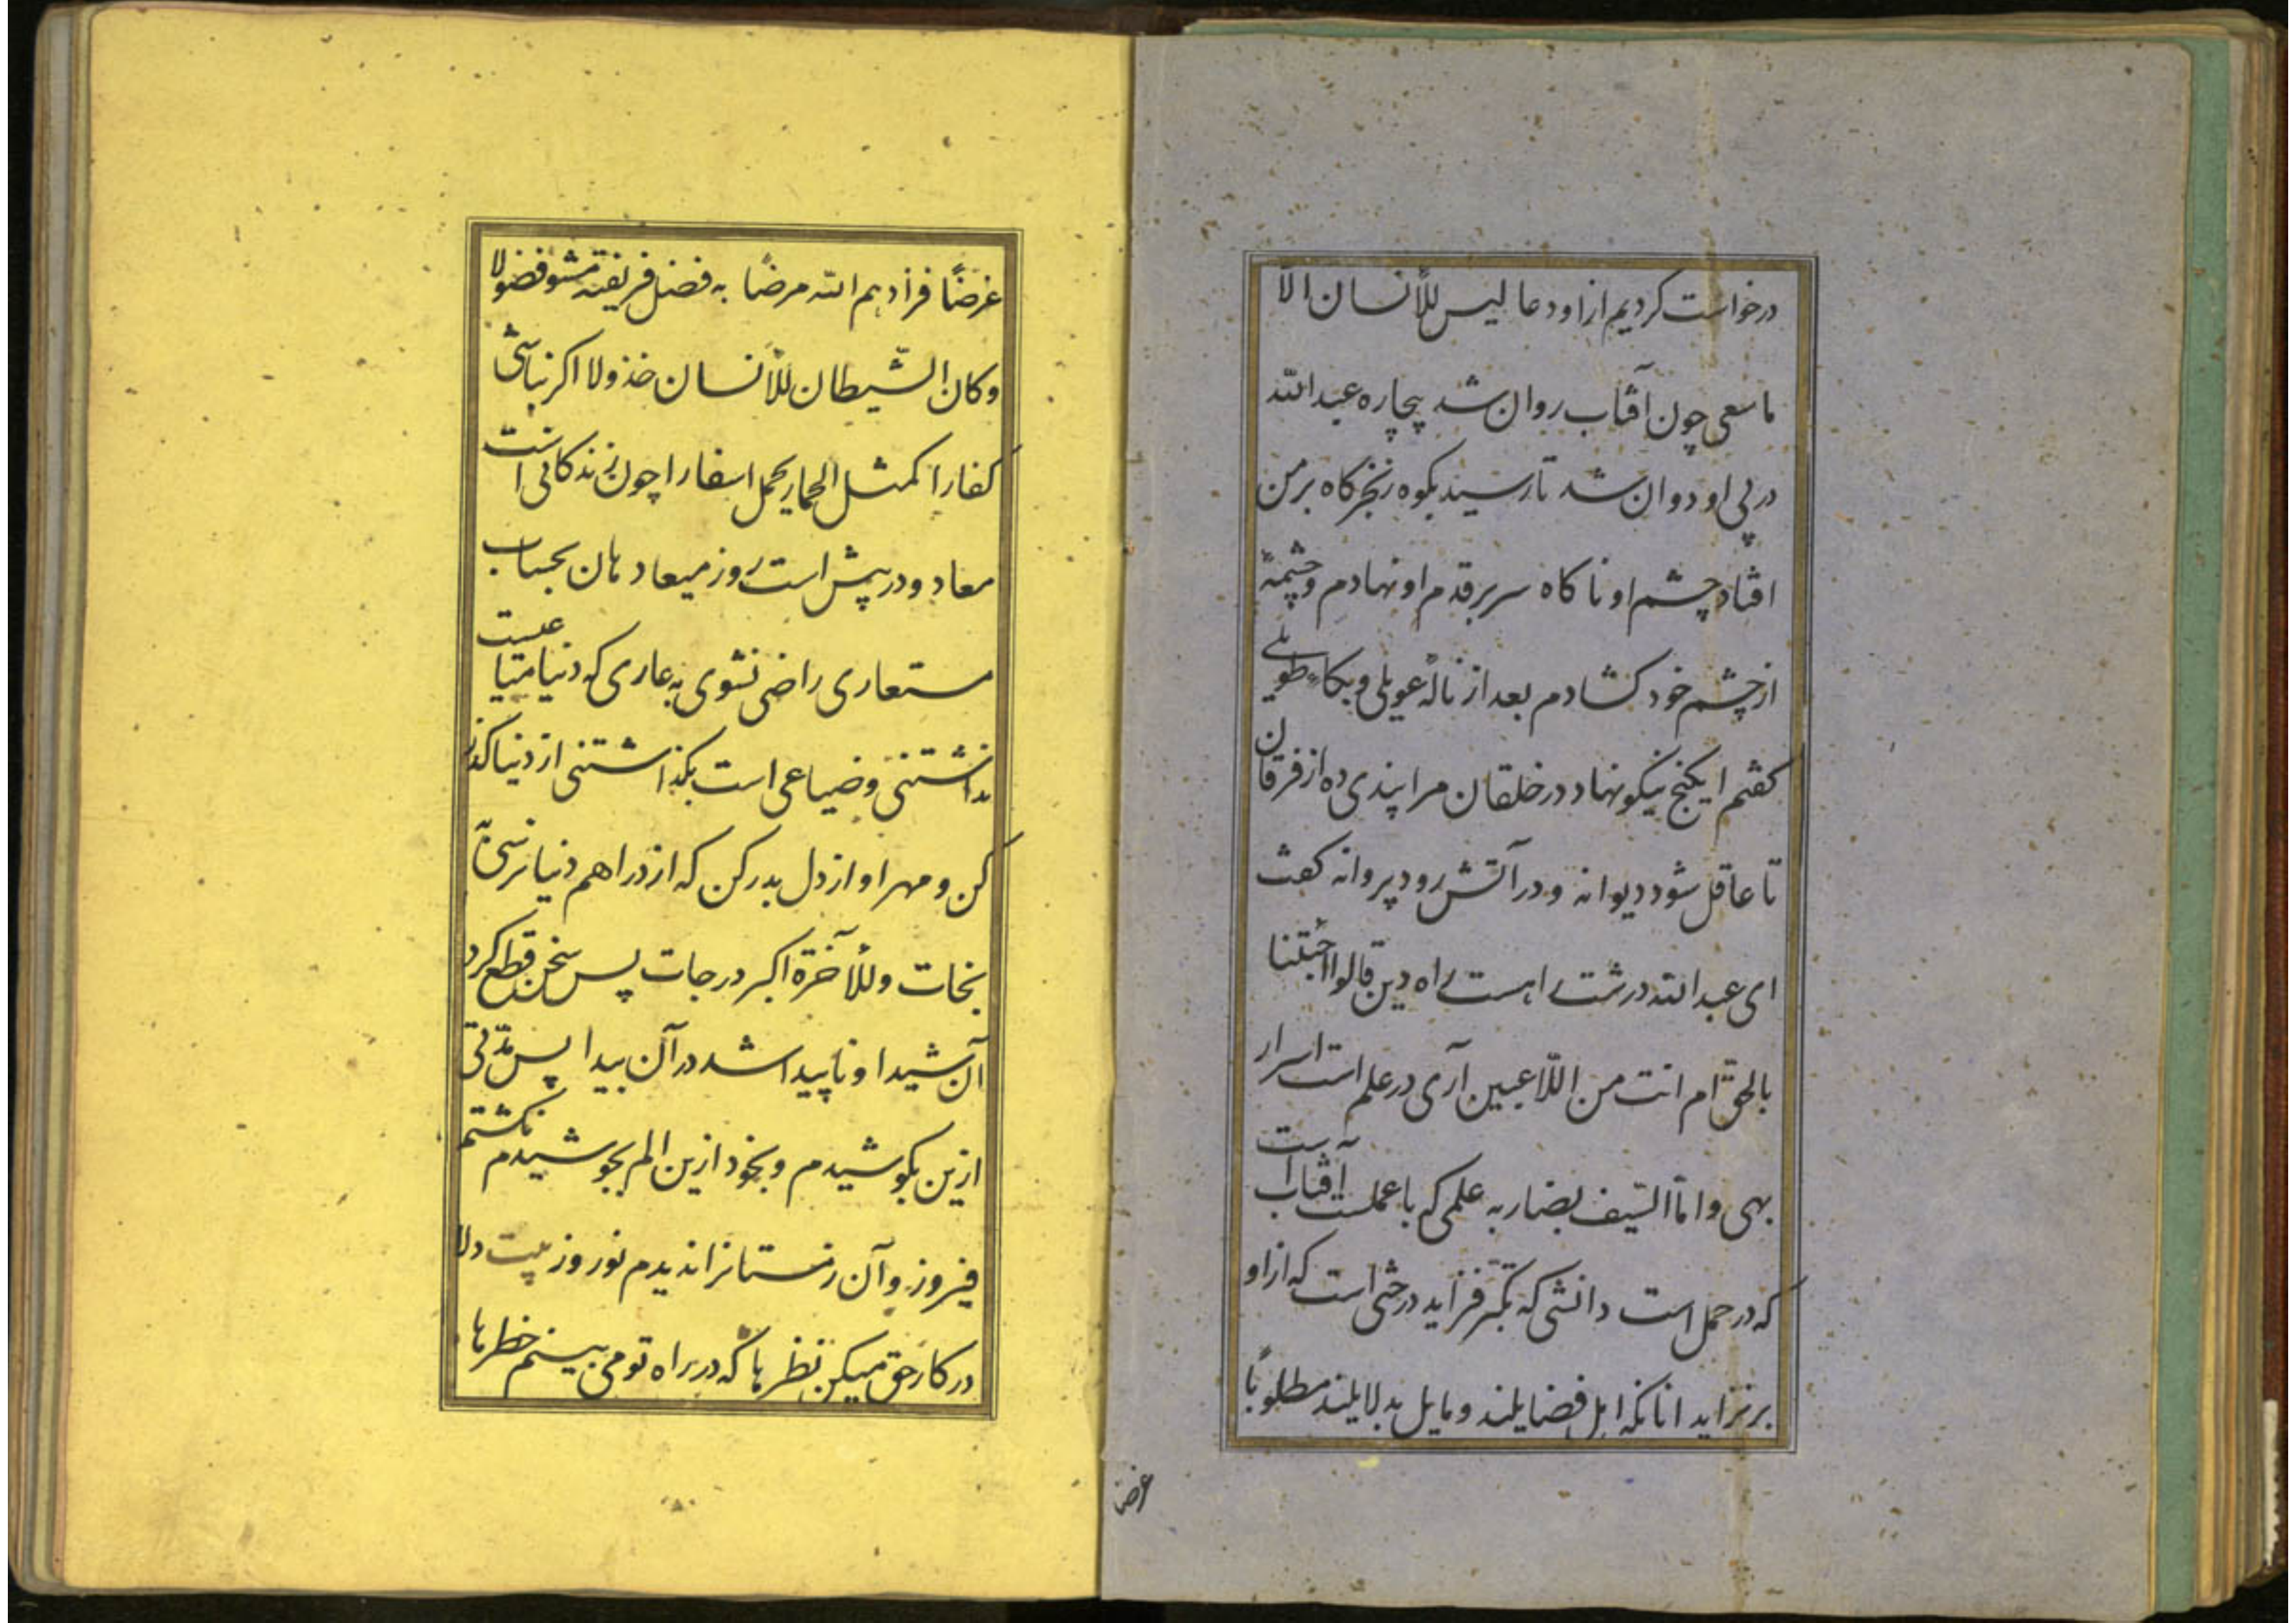 درخواست كرديم از او دعا ليس للأنسان الا
ما سعى چون آفتاب روان شد بيچاره عبدالله
در پى او دوان شد تا رسيد بكوه زنجركاه بر من
افتاد چشم او ناكاه سر بر قدم او نهادم و چشمهٔ
از چشم خود كشادم بعد از نالهٔ عويلى و بكاءٍ طويلى
كفتم اى كنج نيكو نهاد در خلقان مرا پندى ده از فرقان
تا عاقل شود ديوانه و در آتش رود پروانه كفت
اى عبدالله درشت راهست راه دين قالوا اجئتنا
بالحق ام انت من اللّاعبين آرى در علم است اسرار
بهى و امّا السّيف بضاربه علمى كه با عملست آفتاب است
كه در حمل است دانشى كه تكبّر فزايد درختى است كه از او
بر نزايد انانكه اهل فضايلند و مايل بدلايلند مطلوبًا
غرضا
غرضًا فزادهم الله مرضًا به فضل فريفته مشو فضولا
و كان الشّيطان للأنسان خذولا اكر نباشى
كفارا كمثل الحمار يحمل اسفارا چون زندكانى راست
معاد و در پيش است روز ميعاد هان بحساب
مستعارى راضى نشوى به عارى كه دنيا متاعيست
نداشتنى و ضياعى است بكذاشتنى از دنيا كذر
كن و مهر او از دل بدر كن كه از دراهم دنيا نرسى تا
نجات و للأخرة اكبر درجات پس سخن قطع كرد
آن شيدا و ناپيدا شد در آن بيدا پس مدّتى
ازين بكوشيدم و بخود ازين الم بجوشيدم نكشتم
فيروز و آن زمستانرا نديدم نوروز بيت دلا
در كار حق ميكن نظرها كه در راه تو مى بينم خطرها